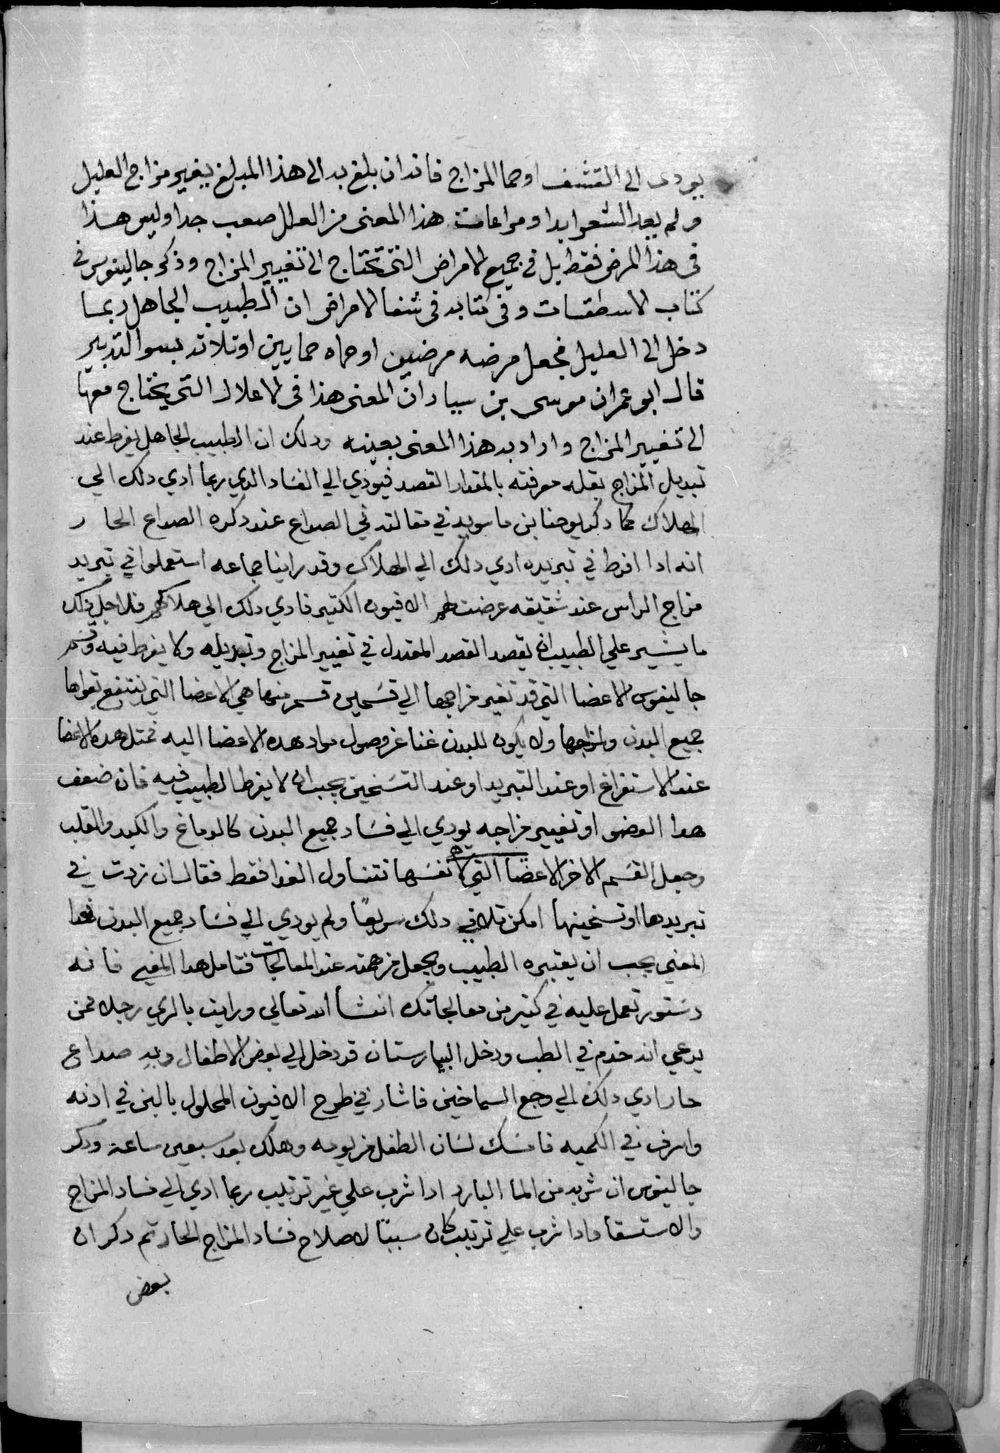 يودى الى القشف او حما المزاج فانه ان بلغ به الى هذا المبلغ يغير مزاج العليل
ولم يعد الشعر ابدا ومراعات هذا المعنى من العلل صعب جدا وليس هذا
فى هذا المرض فقط بل فى جميع الامراض التى تحتاج الى تغيير المزاج وذكر جالينوس فى
كتاب الاسطقسات وفى كتابه فى شفا الامراض ان الطبيب الجاهل ربما
دخل الى العليل فجعل مرضه مرضين او حماه حمايين او ثلاثه بسو التدبير
قال ابو عمران موسى بن سيار ان المعنى هذا فى الاعلال التى يحتاج معها
الى تغيير المزاج واراد به هذا المعنى بعينه ودلك ان الطبيب الجاهل يفرط عند
تبديل المزاج لقله معرفته بالمقدار القصد فيودي الي الفساد الدي ربما ادي دلك الي
الهلاك كما دكر يوحنا بن ماسويه في مقالته في الصداع عند دكره الصداع الحار
انه ادا افرط في تبريده ادي دلك الي الهلاك وقد راينا جماعه استعملوا في تبريد
مزاج الراس عند شقيقه عرضت لهم الافيون الكتير فادي دلك الي هلاكهم فلاجل دلك
ما يشير علي الطبيب ان يقصد القصد المعتدل في تغيير المزاج وتبديله ولا يفرط فيه وقسم
جالينوس الاعضا التي قد تغير مزاجها الي قسمين قسم منها هي الاعضا التي ينتفع بقواها
جميع البدن ومزاجها ولا يكون للبدن غنا عن وصول مواد هده الاعضا اليه فمتل هده الاعضا
عند الاستفراغ او عند التبريد او عند التسخين يجب ان لا يفرط الطبيب فيه فان ضعف
هدا العضو او تغيير مزاجه يودي الي فساد جميع البدن كالدماغ والكبد والقلب
وجعل القسم الاخر الاعضا التي لانفسها تتناول الغدا فقط فقال ان زدت في
تبريدها او تسخينها امكن تلافي دلك سريعا ولم يودي الي فساد جميع البدن فهدا
المعني يجب ان يعتبره الطبيب ويجعل من همته عند المعالجات فتامل هدا المعني فانه
دستور تعمل عليه في كتير من معالجاتك انشا الله تعالي ورايت بالري رجلا ممن
يدعي انه خدم في الطب ودخل البيمارستان قد دخل الي بعض الاطفال وبه صداع
حار ادي دلك الي وجع السماخين فاشار في طرح الافيون المحلول بالبن في ادنه
واسرف في الكميه فامسك لسان الطفل من يومه وهلك بعد سبعين ساعة ودكر
جالينوس ان شربه من الما البارد ادا شرب علي غير ترتيب ربما ادي الي فساد المزاج
والاستسقا وادا شرب علي ترتيب كان سببا لاصلاح فساد المزاج الحار تم دكر ان
بعض